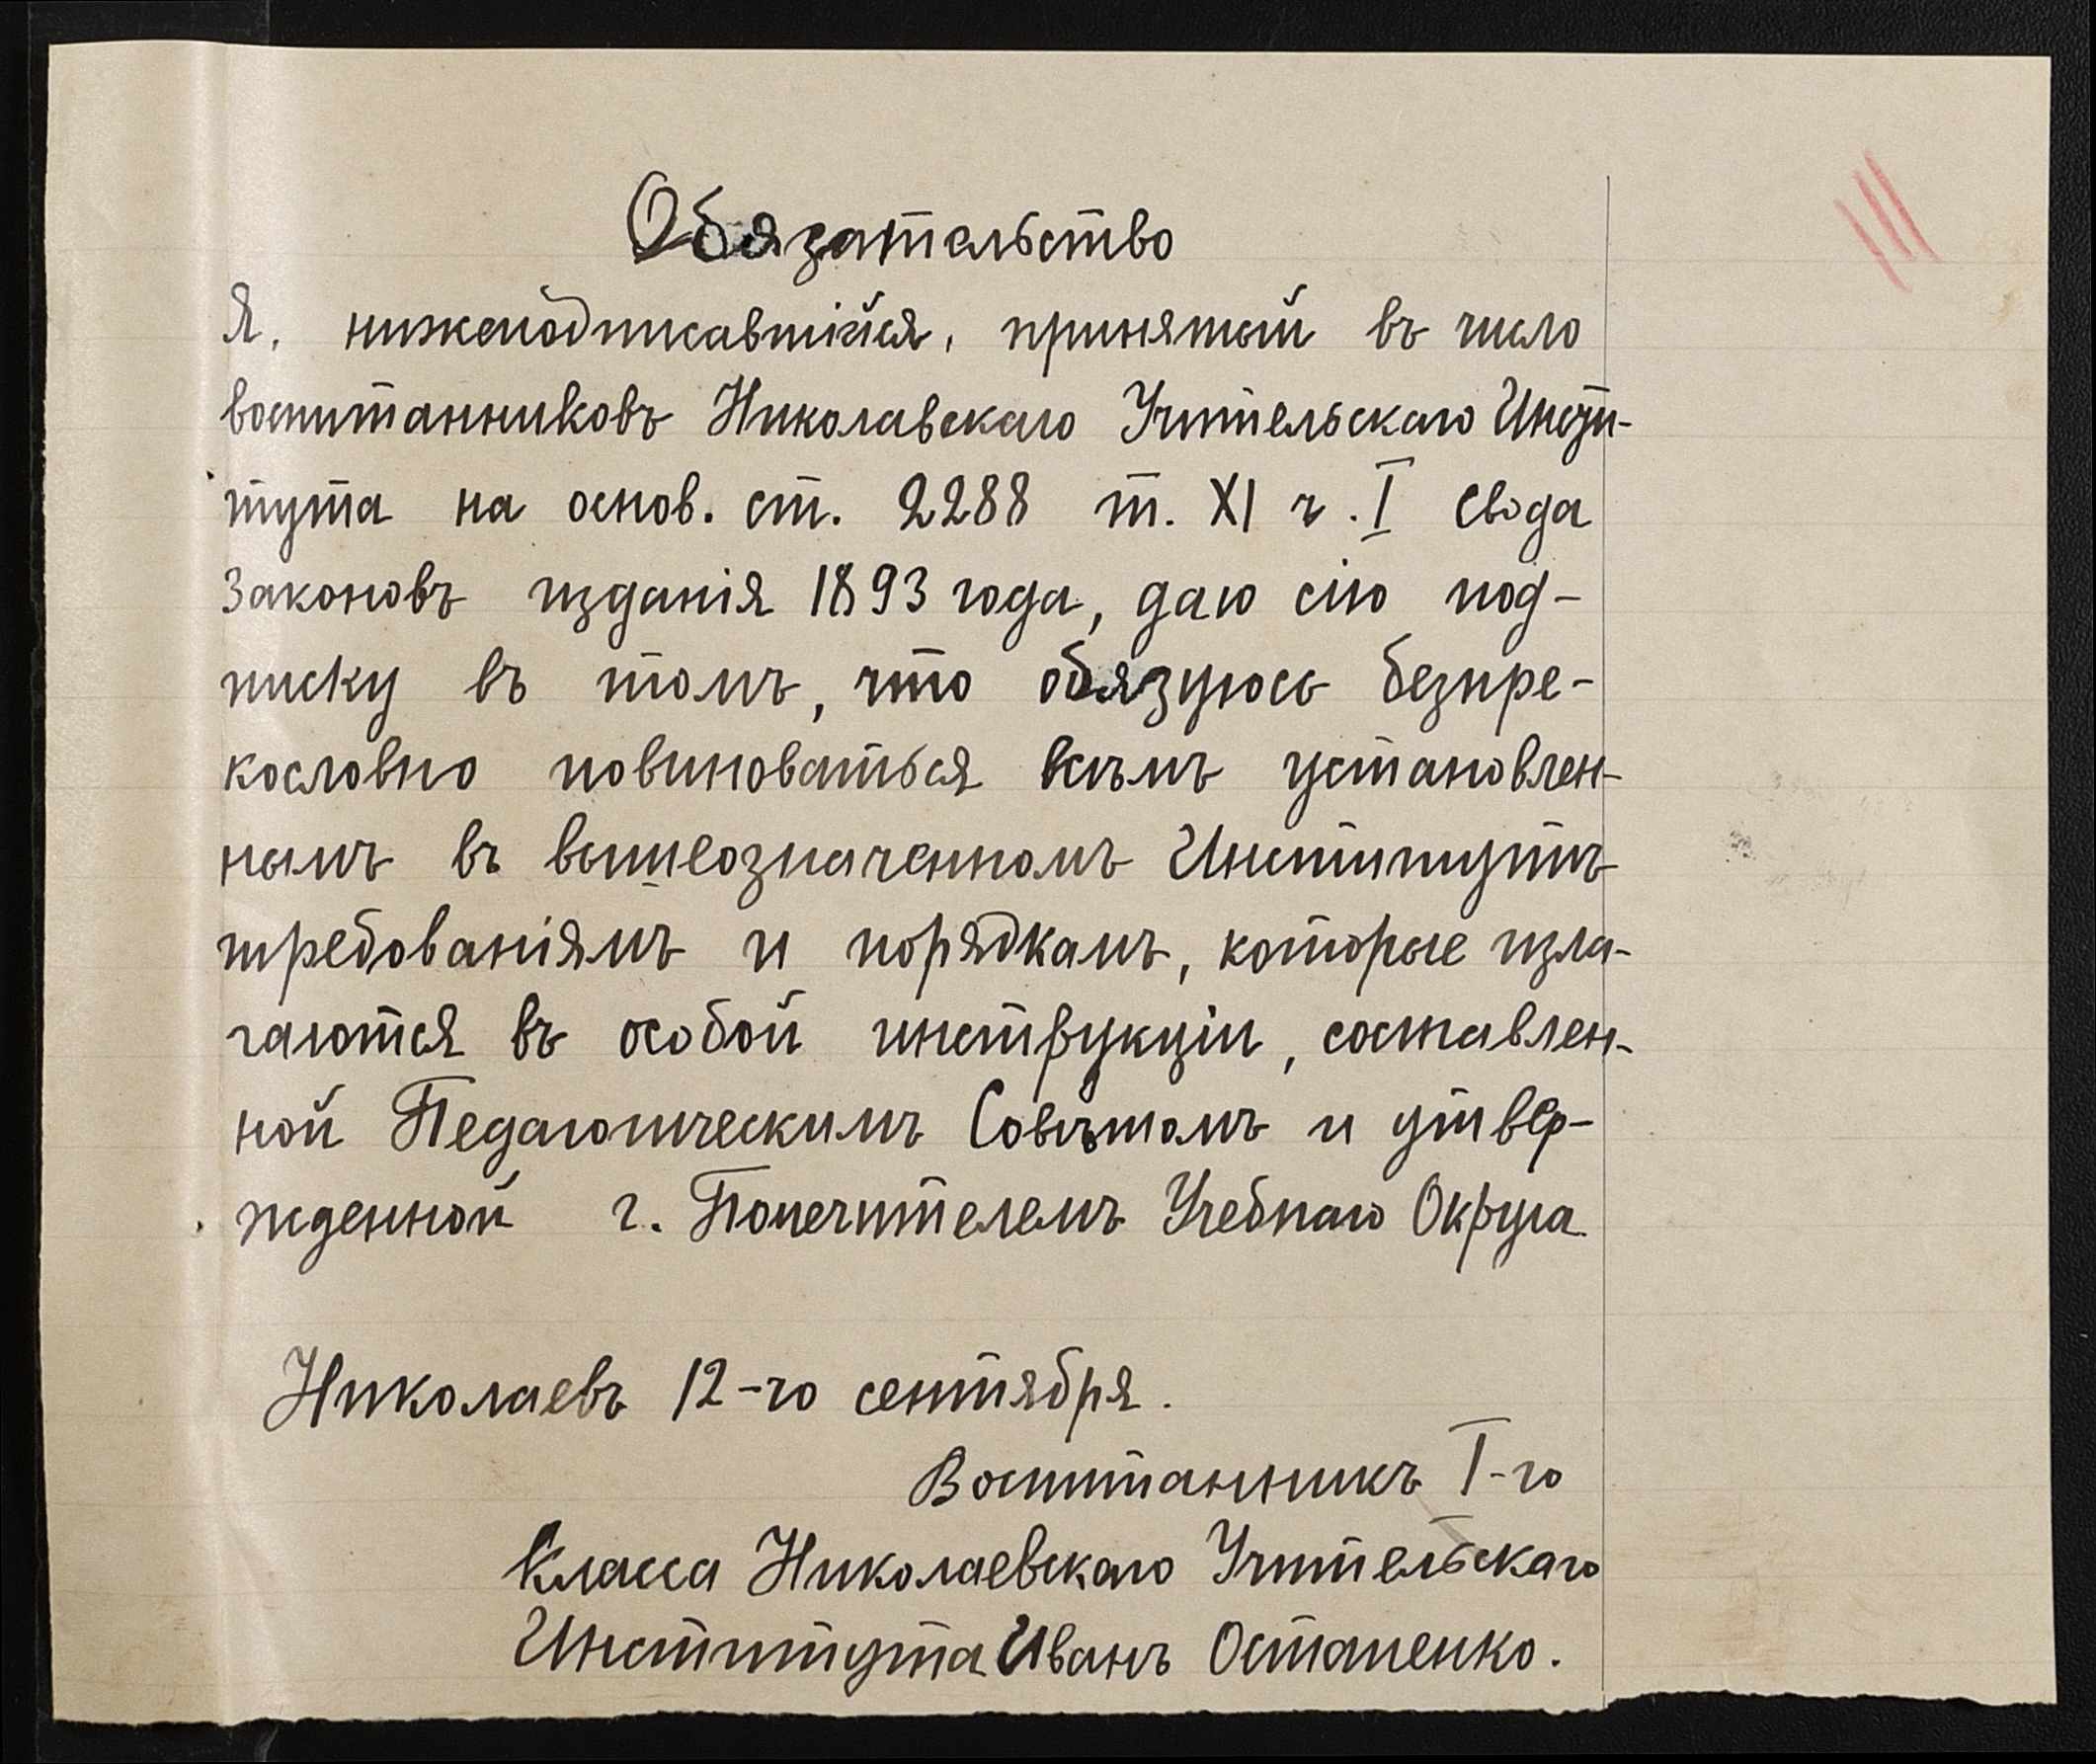 Обязательство
Я, нижеподписавшійся, принятый въ число
воспитанниковъ Николавскаго Учительскаго Инсти-
тута на основ. ст. 2288 т. XI ч. I Свода
Законовъ изданія 1893 года, даю сію под-
писку въ томъ, что обязуюсь безпре-
кословно повиноваться всѣмъ установлен-
нымъ въ вышеозначенномъ Институтѣ
требованіямъ и порядкамъ, которые изла-
гаются въ особой инструкціи, составлен-
ной Педагогическимъ Совѣтомъ и утвер-
жденной г. Попечителемъ Учебнаго Округа
Николаевъ 12-го сентября.
Воспитанникъ I-го
Класса Николаевскаго Учительскаго
Института Иванъ Остапенко.